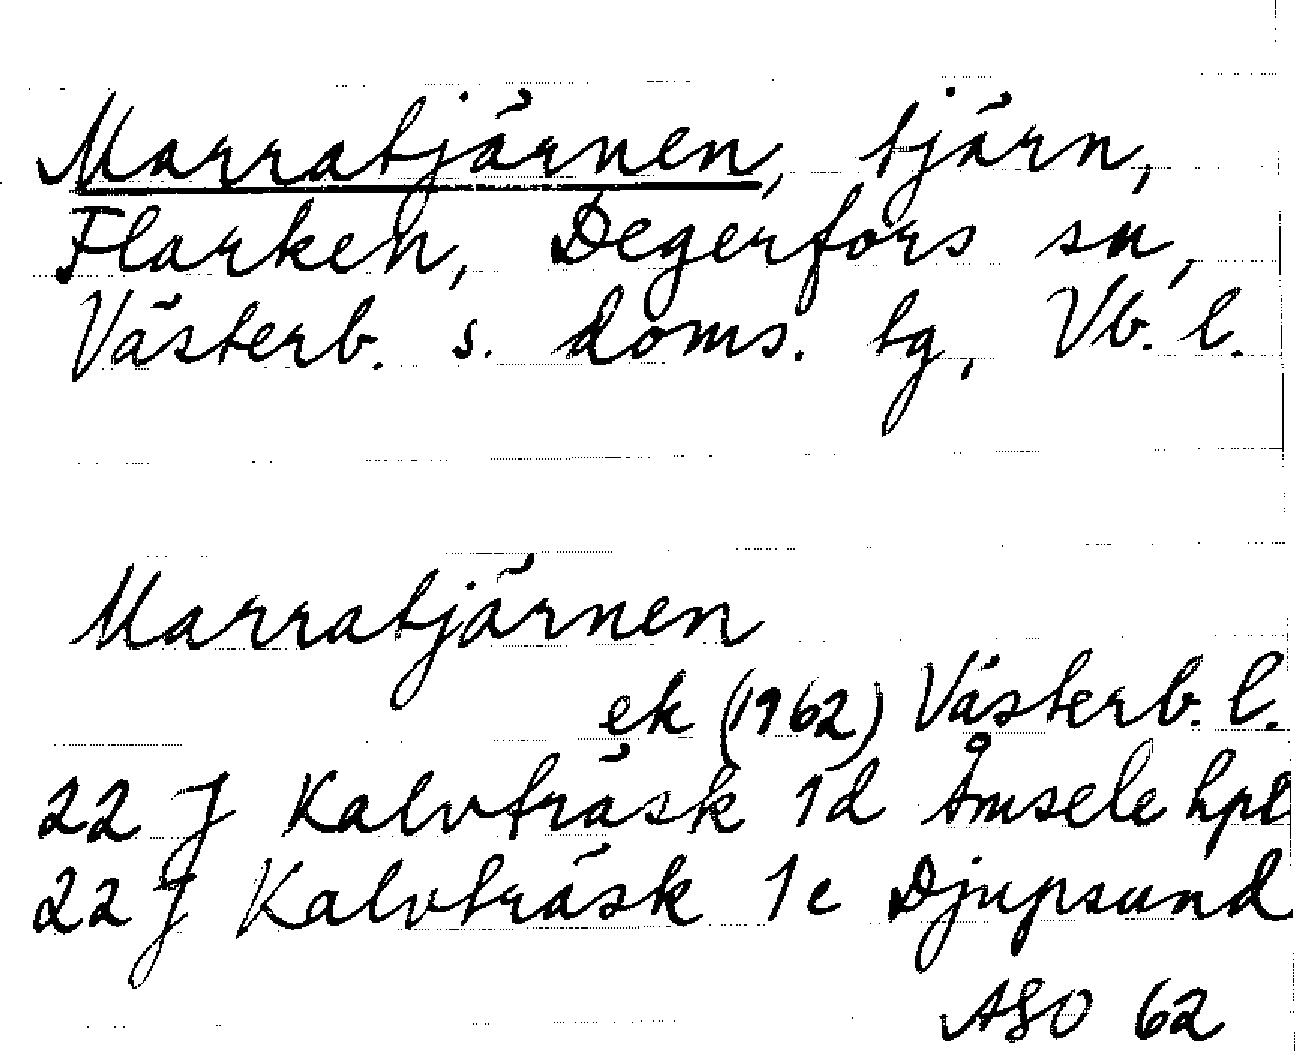 Marratjärnen, tjärn,
Flarken, Degerfors sn,
Västerb. s. doms. tg, Vb. l.
Marratjärnen
ek (1962) Västerb. l.
22 J Kalvträsk 1d Åmsele hpl
22 J Kalvträsk 1e Djupsund
ASO 62